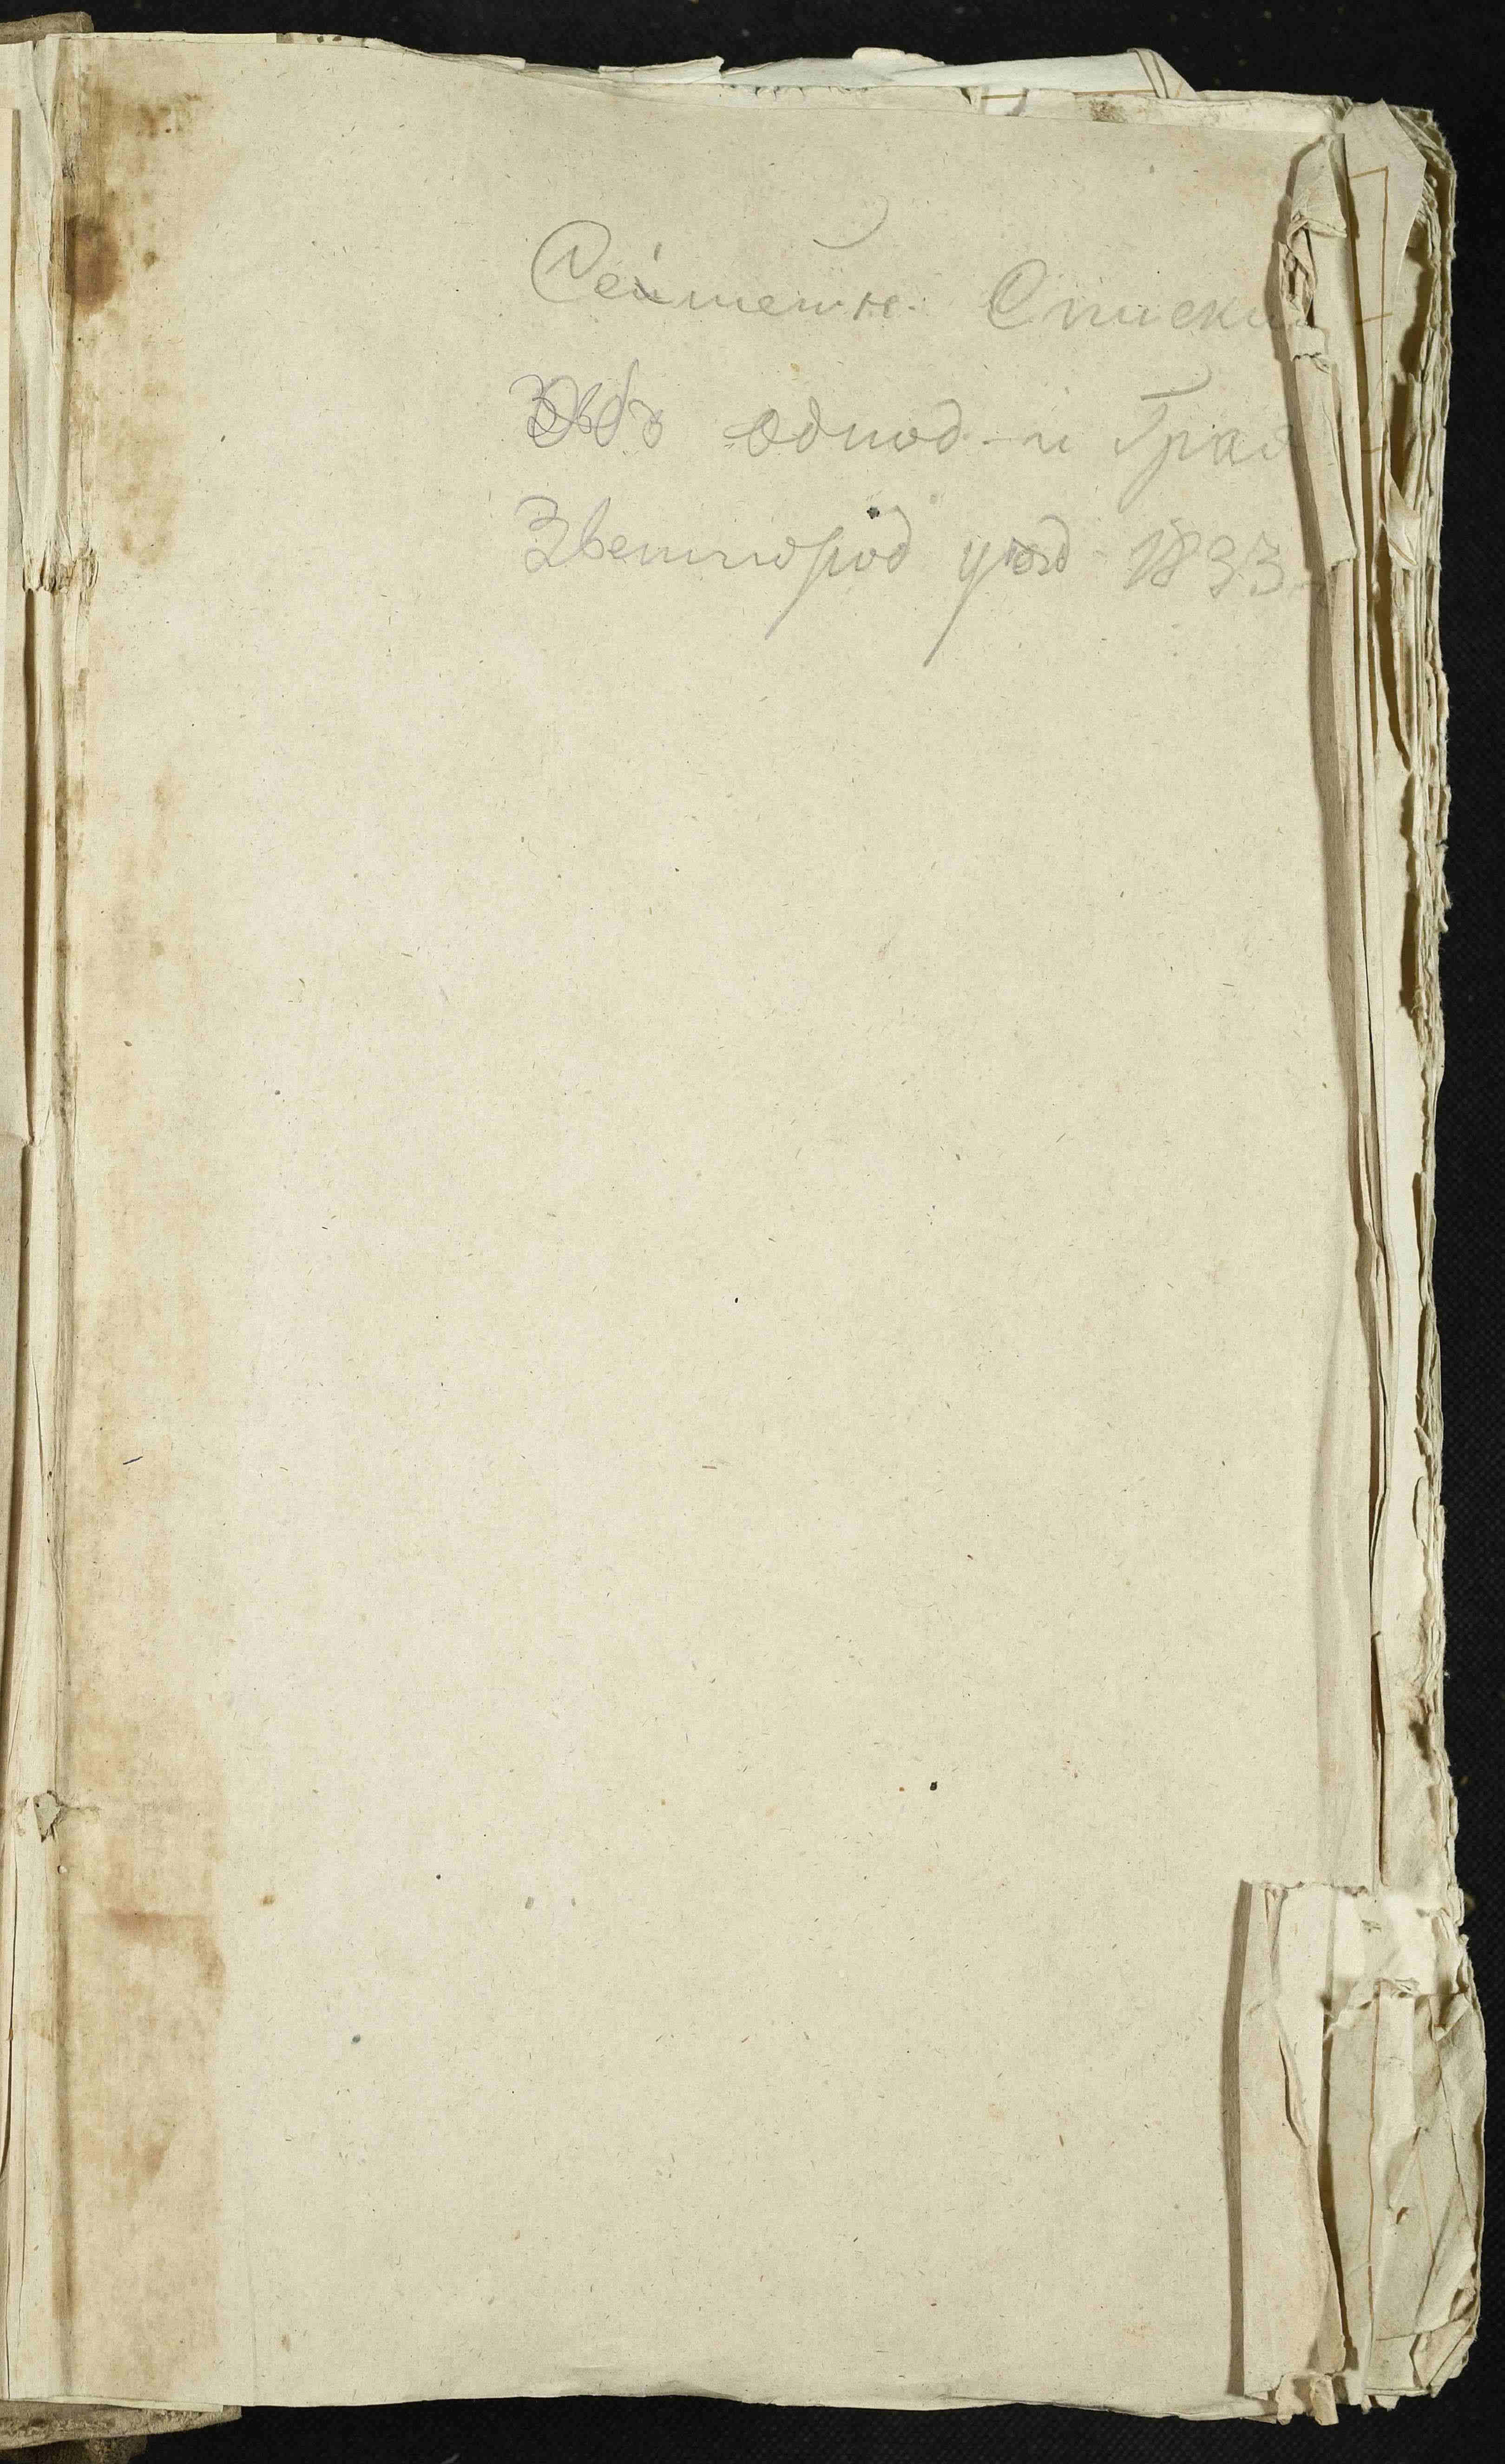 Семейн. Списки
Объ однод. и Граж
Звенигород уезд 1833